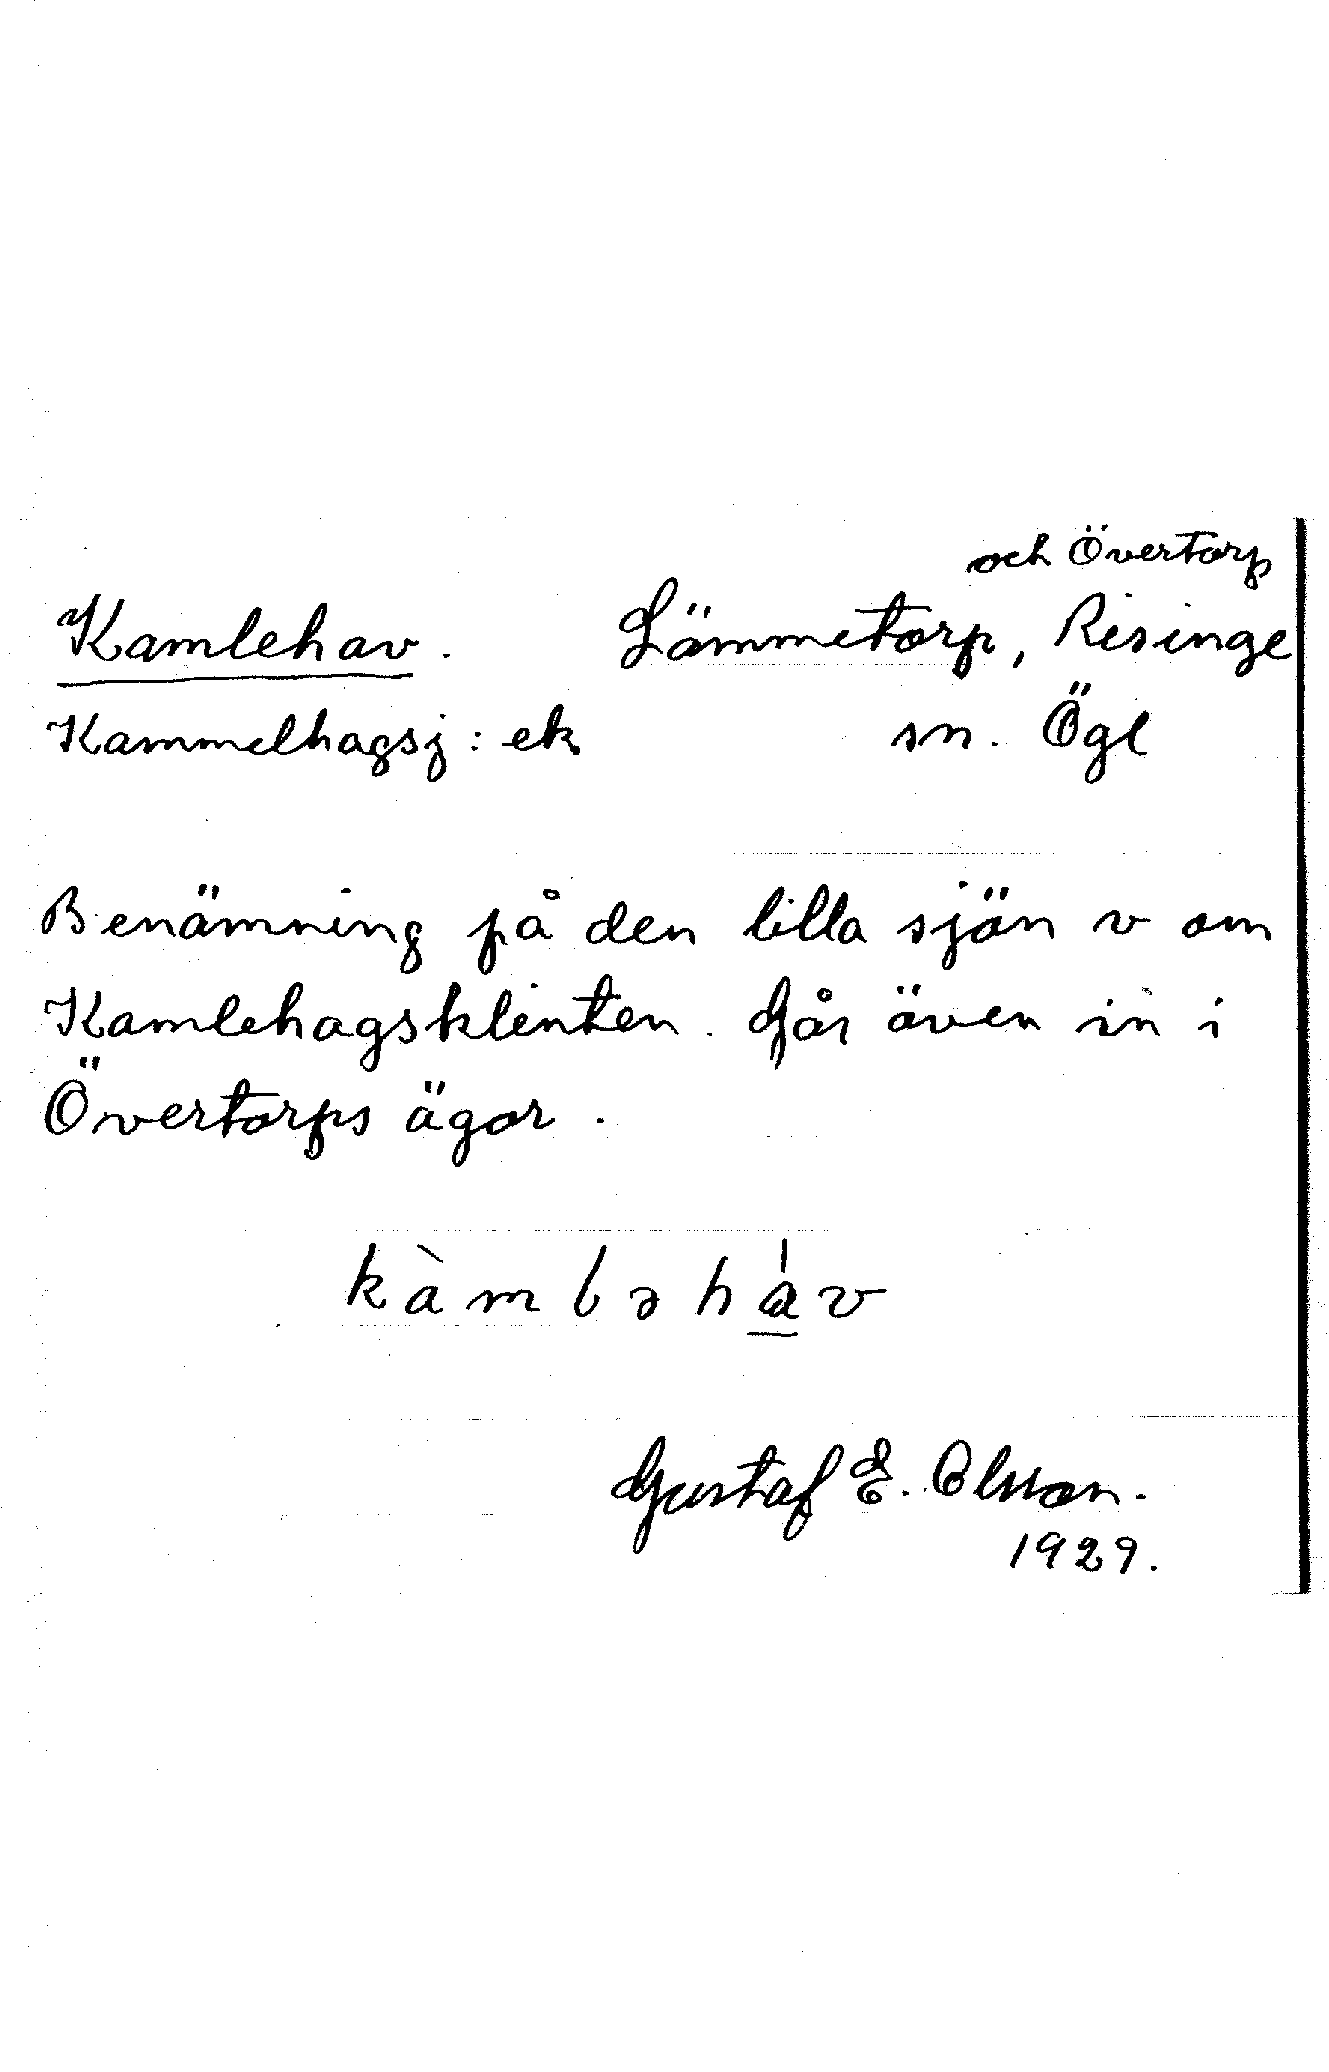 och Övertorp
Kamlehav. Lämmetorp, Risinge
Kammelhagsj: ek sn. Ögl
Benämning på den lilla sjön v om
Kamlehagsklinten. Går även in i
Övertorps ägor.
kàmləha̍v
Gustaf E. Olsson.
1929.